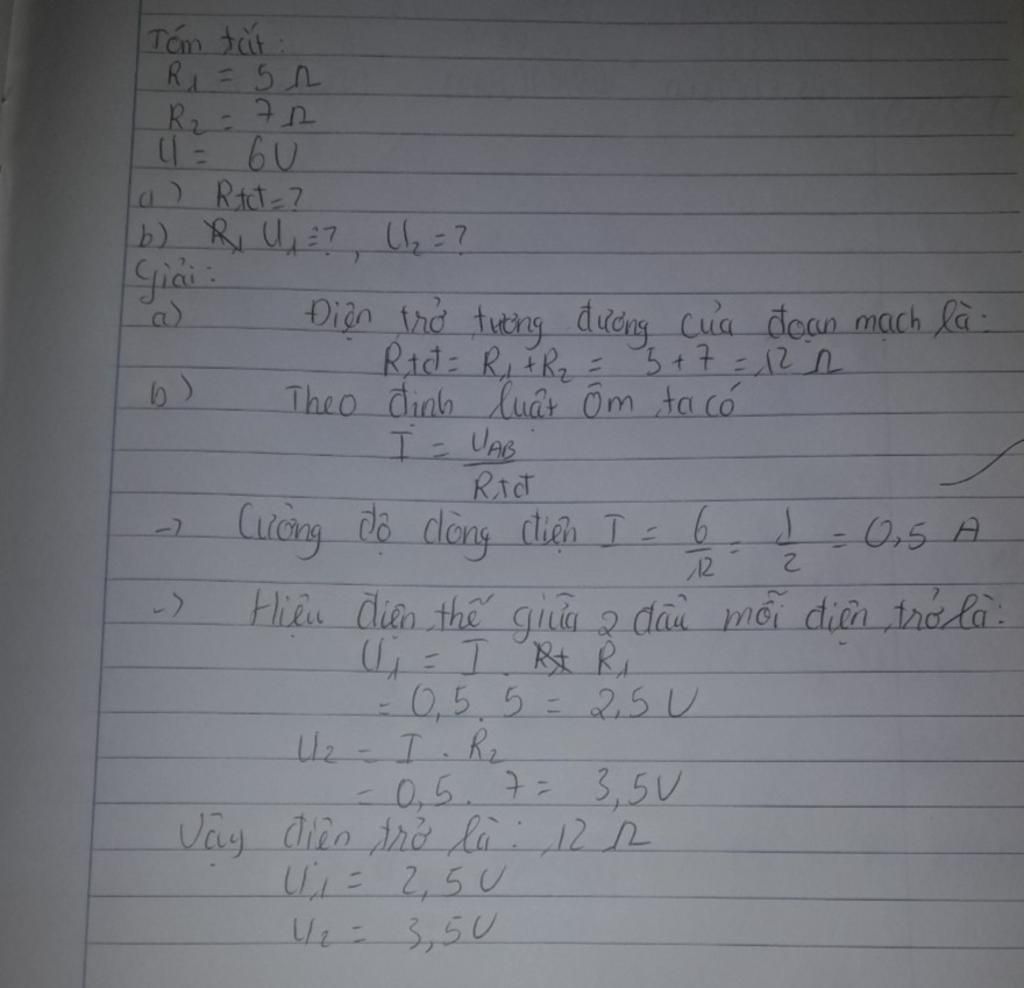 Tóm tắt:
R1 = 5 Ω
R2 = 7 Ω
U = 6V
a) Rtđ = ?
b) U1 = ?, U2 = ?
Giải:
a) Điện trở tương đương của đoạn mạch là:
Rtđ = R1 + R2 = 5 + 7 = 12 Ω
b) Theo định luật Ôm ta có
I = UAB
Rtđ
-> Cường độ dòng điện I = 6/12 = 1/2 = 0,5 A
-> Hiệu điện thế giữa 2 đầu mỗi điện trở là:
U1 = I . R1
= 0,5 . 5 = 2,5 V
U2 = I . R2
= 0,5 . 7 = 3,5V
Vậy điện trở là: 12 Ω
U1 = 2,5 V
U2 = 3,5V